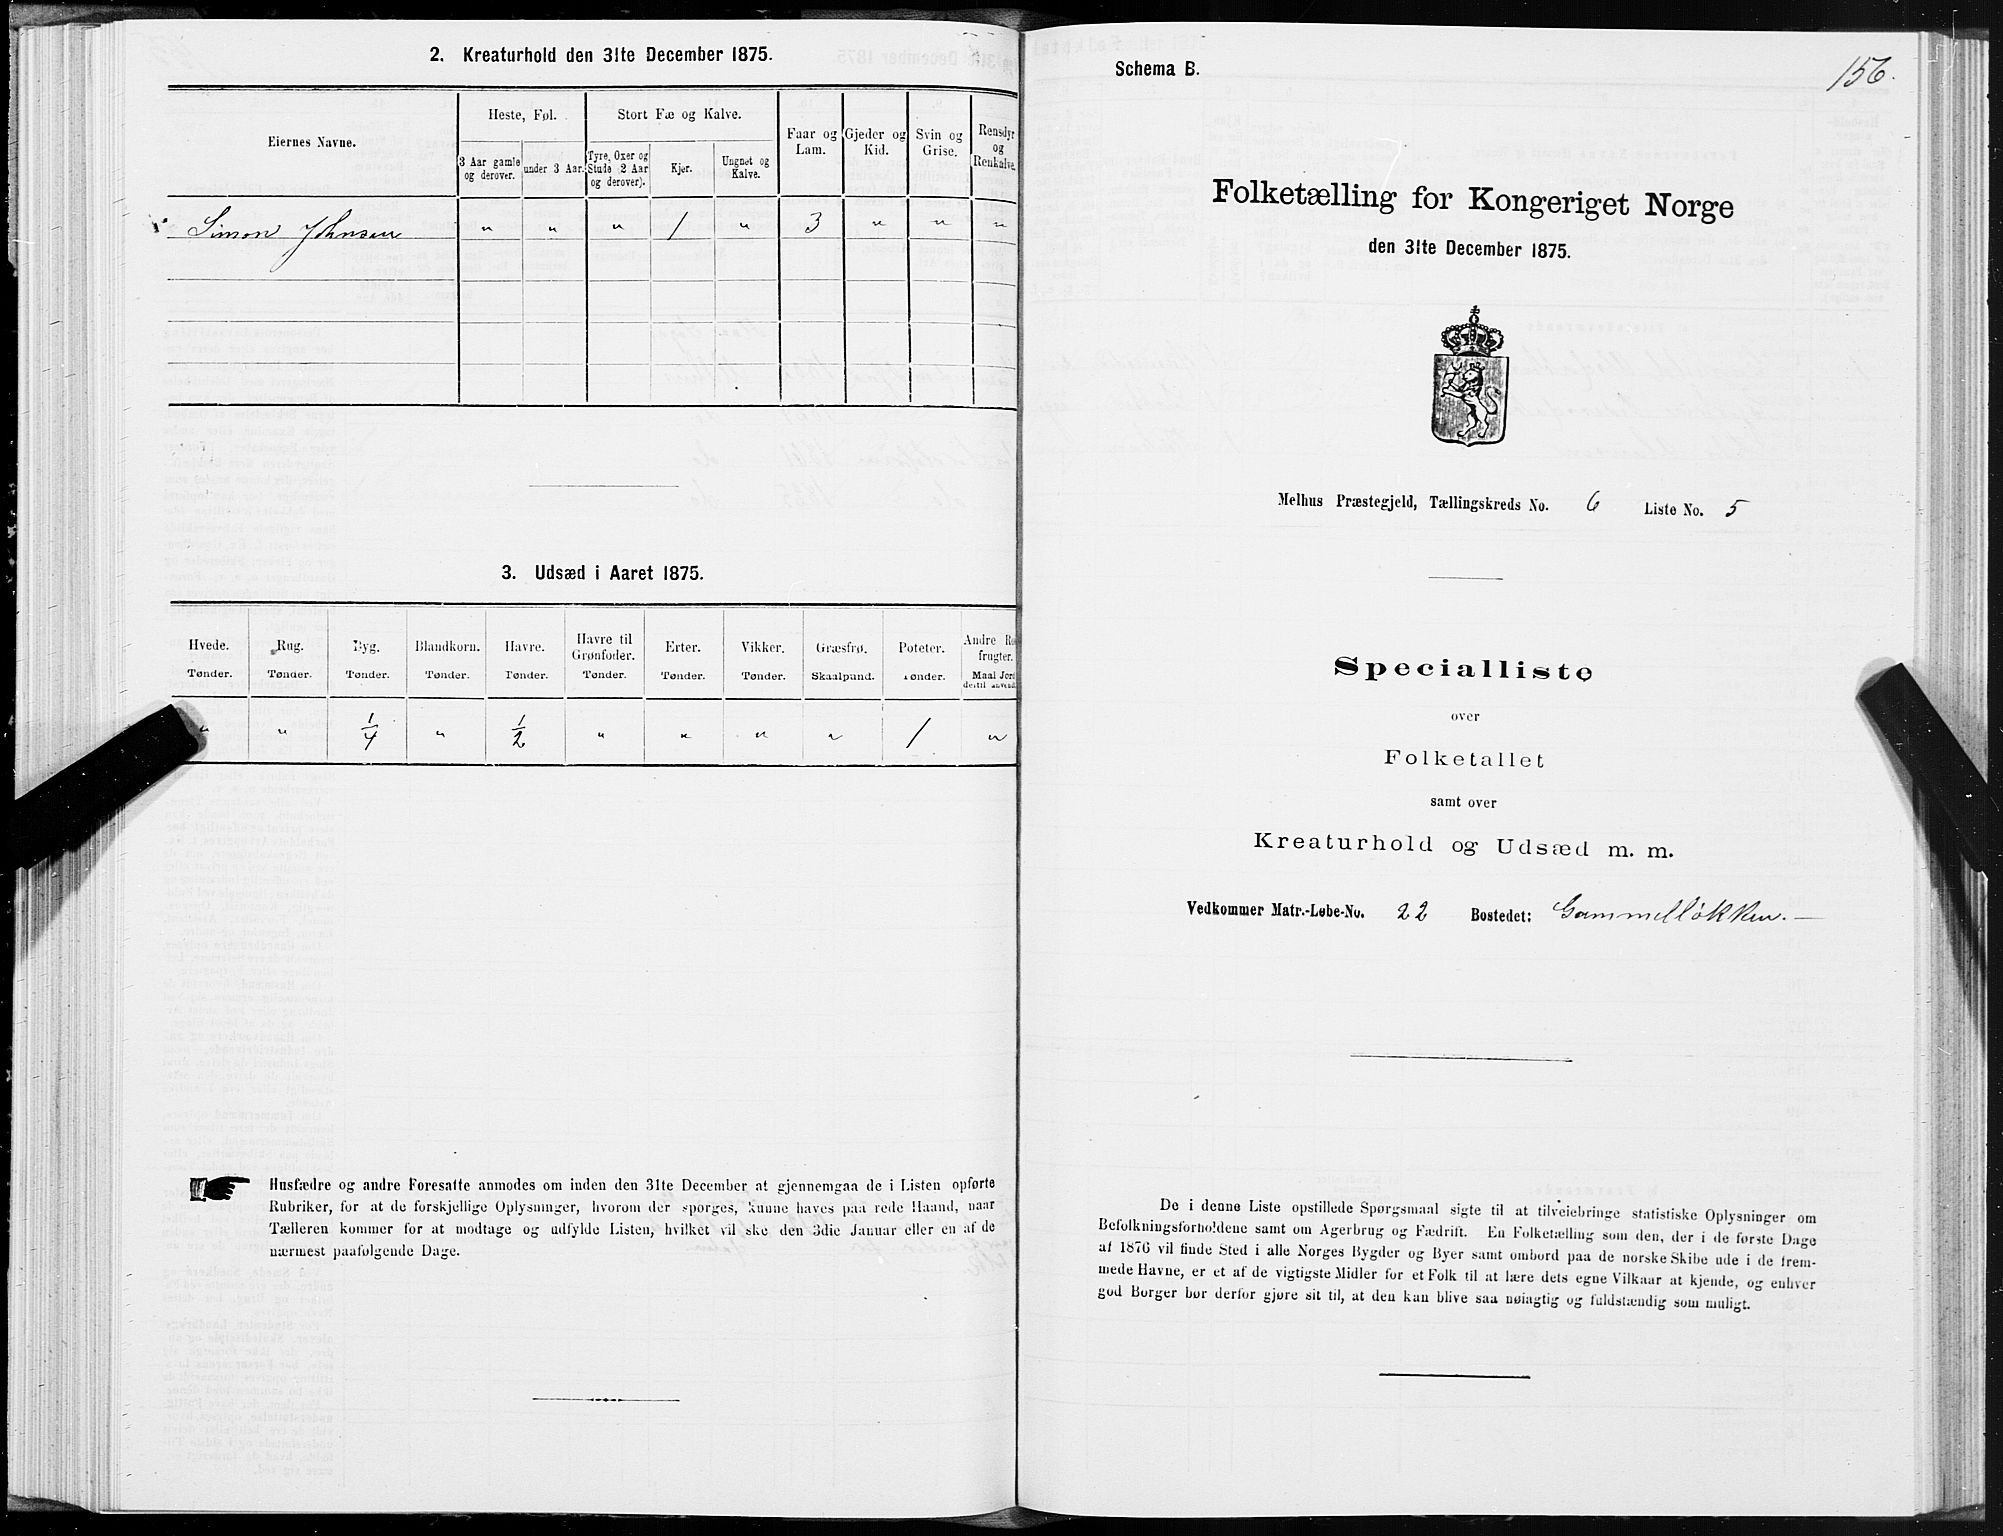 2. Kreaturhold den 31te December 1875.
Eiernes Navne.
Heste, Føl.
Stort Fæ og Kalve.
Faar og Lam.
Gjeder og Kid.
Svin og Grise.
Rensdyr og Renkalve.
3 Aar gamle og derover.
under 3 Aar.
Tyre, Oxer og Stude (2 Aar og derover).
Kjør.
Ungnet og Kalve.
Simon Johnsen " " " 1 " 3 " " "
3. Udsæd i Aaret 1875.
Hvede. Rug. Byg. Blandkorn. Havre. Havre til Grønfoder. Erter. Vikker. Græsfrø. Poteter. Andre Ro- frugter.
Tønder. Tønder. Tønder. Tønder. Tønder. Tønder. Tønder. Tønder. Skaalpund. Tønder. Maal Jord dertil anvendt.
" " 1/4 " 1/2 " " " " 1 "
Husfædre og andre Foresatte anmodes om inden den 31te December at gjennemgaa de i Listen opførte
Rubriker, for at de forskjellige Oplysninger, hvorom der spørges, kunne haves paa rede Haand, naar
Tælleren kommer for at modtage og udfylde Listen, hvilket vil ske den 3die Januar eller en af de
nærmest paafølgende Dage.
Schema B.
156.
Folketælling for Kongeriget Norge
den 31te December 1875.
Melhus Præstegjeld, Tællingskreds No. 6 Liste No. 5
Specialliste
over
Folketallet
samt over
Kreaturhold og Udsæd m. m.
Vedkommer Matr.-Løbe-No. 22 Bostedet: Gammelløkken.—
De i denne Liste opstillede Spørgsmaal sigte til at tilveiebringe statistiske Oplysninger om
Befolkningsforholdene samt om Agerbrug og Fædrift. En Folketælling som den, der i de første Dage
af 1876 vil finde Sted i alle Norges Bygder og Byer samt ombord paa de norske Skibe ude i de frem-
mede Havne, er et af de vigtigste Midler for et Folk til at lære dets egne Vilkaar at kjende, og enhver
god Borger bør derfor gjøre sit til, at den kan blive saa nøiagtig og fuldstændig som muligt.